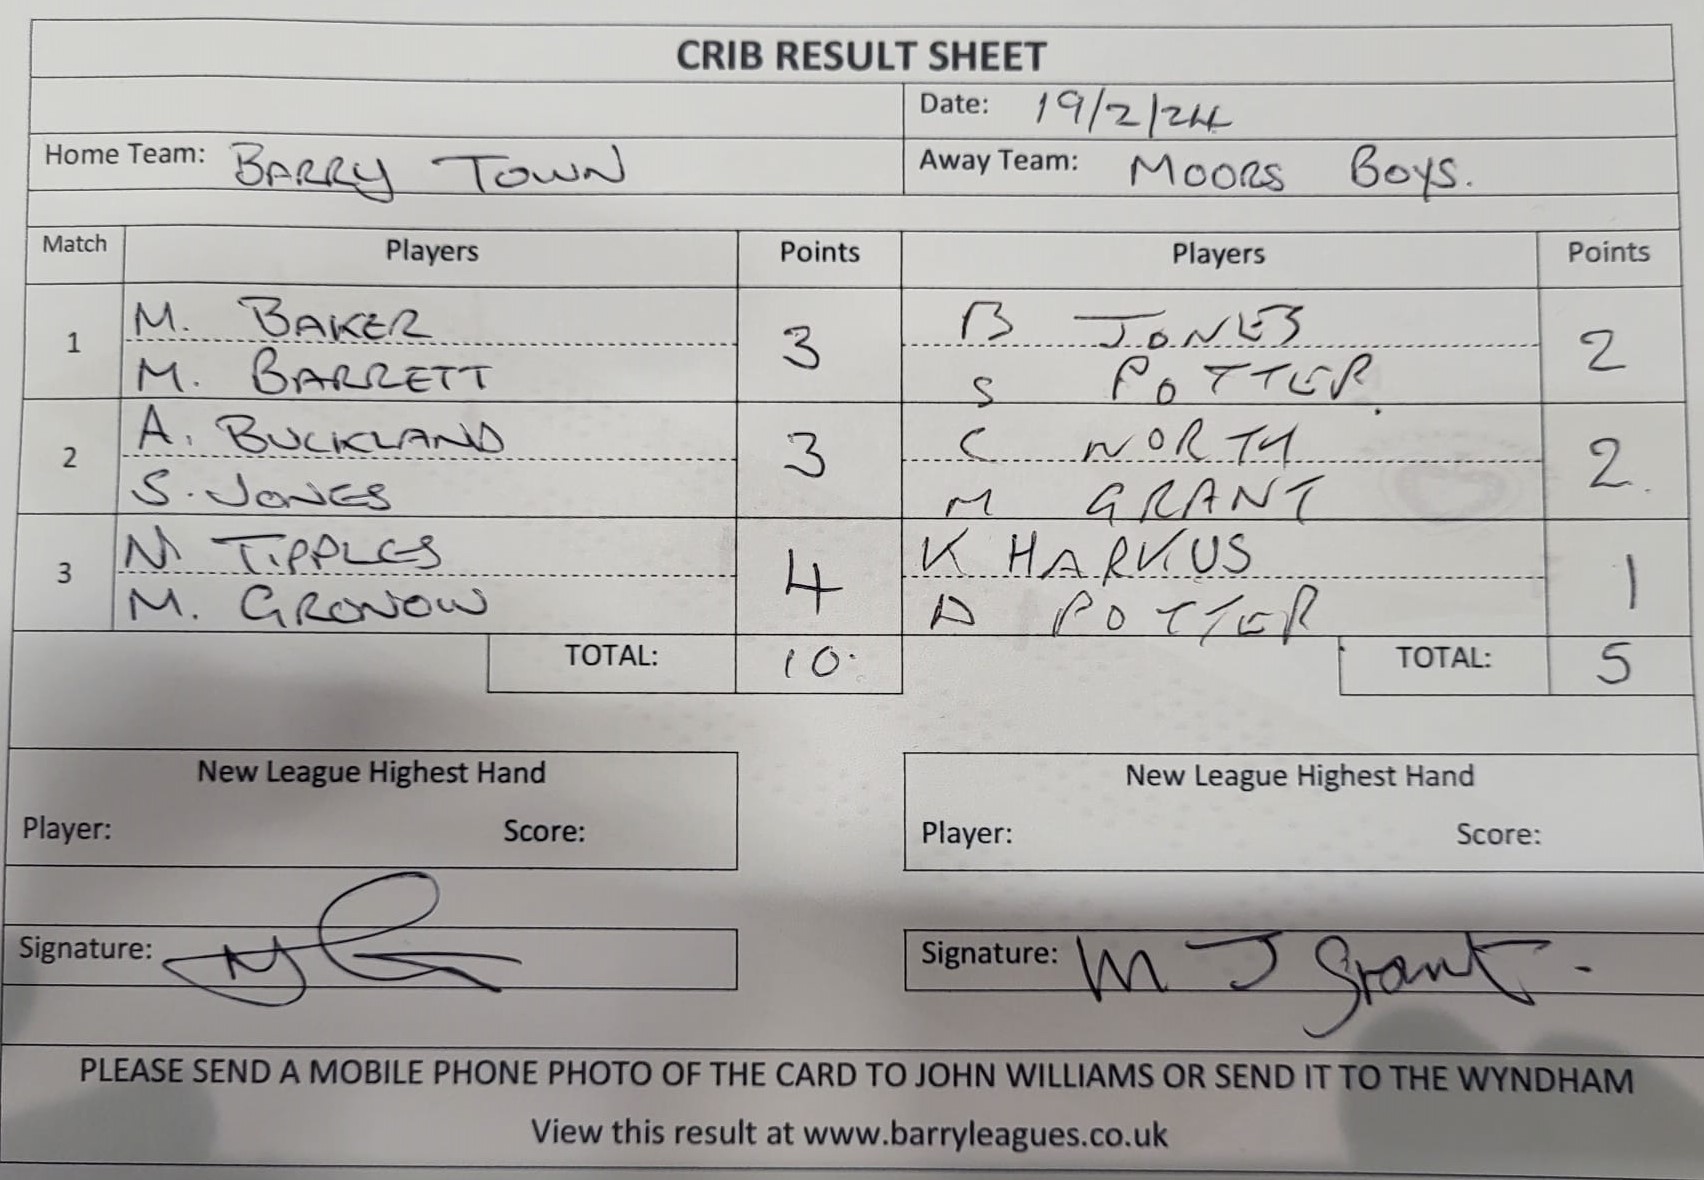 CRIB RESULT SHEET
Date: 19/2/24
Home Team: BARRY TOWN Away Team: MOORS BOYS.
Match Players Points Players Points
1 M. BAKER 3 B JONES 2
M. BARRETT S POTTER.
2 A. BUCKLAND 3 C NORTH 2.
S. JONES M GRANT
3 N. TIPPLES 4 K HARKUS 1
M. GRONOW D POTTER
TOTAL: 10. TOTAL: 5
New League Highest Hand New League Highest Hand
Player: Score: Player: Score:
Signature: Signature: M J Grant.
PLEASE SEND A MOBILE PHONE PHOTO OF THE CARD TO JOHN WILLIAMS OR SEND IT TO THE WYNDHAM
View this result at www.barryleagues.co.uk